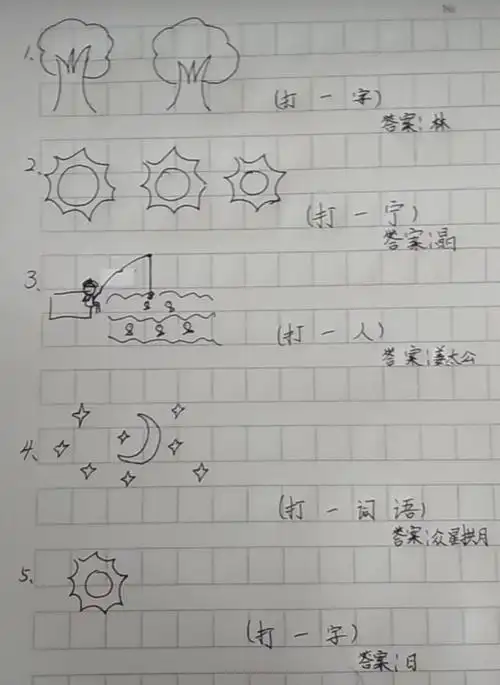 1、
(打一字)
答案:林
2、
(打一宁)
答案:晶
3、
(打一人)
答案:姜太公
4、
(打一词语)
答案:众星拱月
5、
(打一字)
答案:日